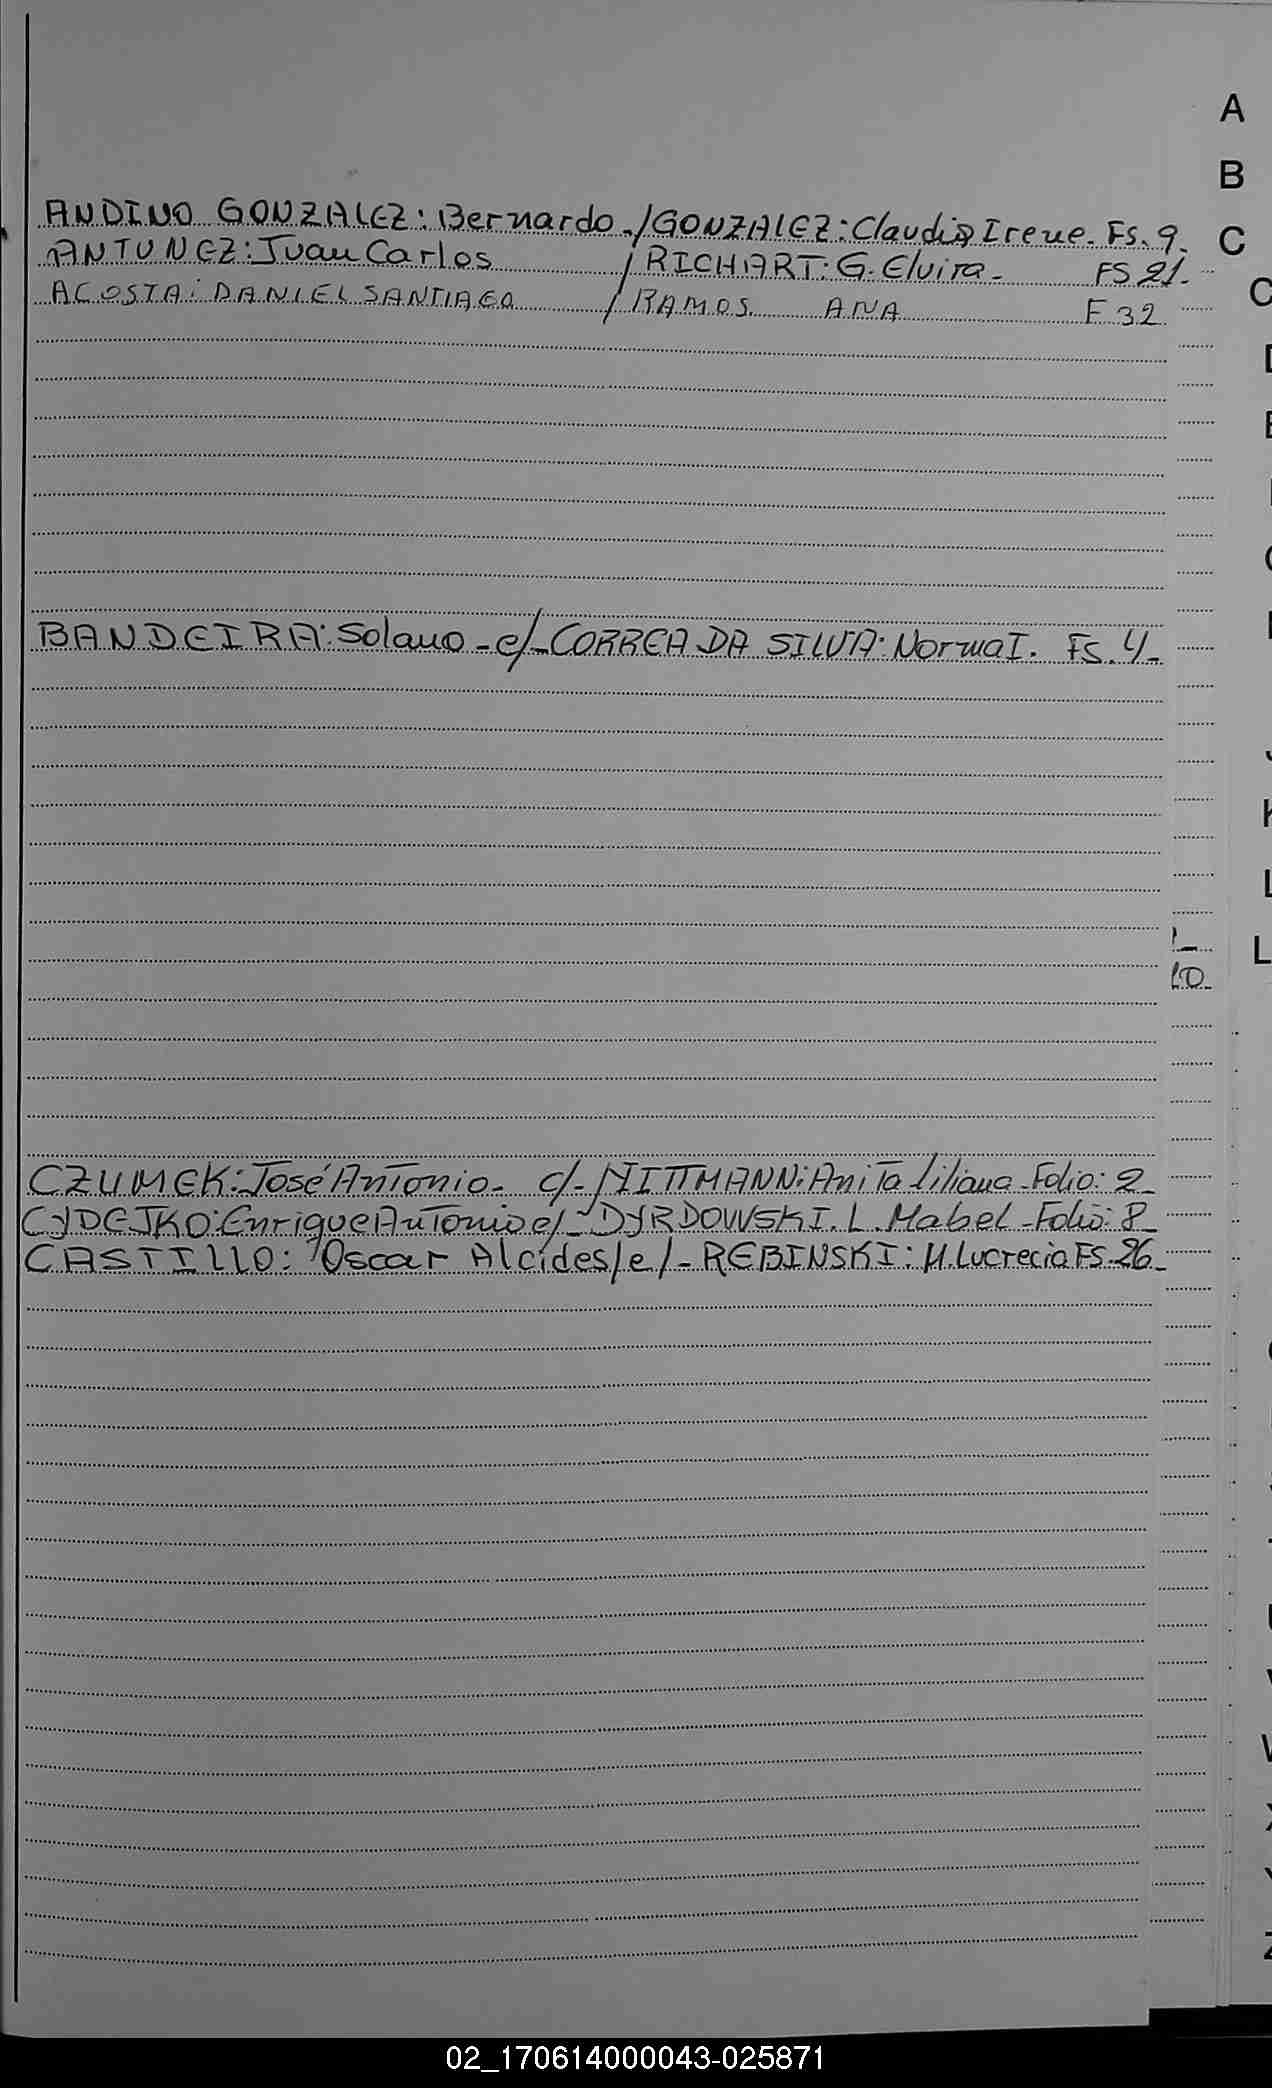 A
B
ANDINO GONZALEZ: Bernardo. / GONZALEZ: Claudia Irene. Fs. 9.
C
ANTUNEZ: Juan Carlos / RICHART: G. Elvira. FS 21.
ACOSTA: DANIEL SANTIAGO / RAMOS ANA F 32
BANDEIRA: Solano - c/- CORREA DA SILVA: Norma I. Fs. 4-
L
10-
CZUMEK: José Antonio- c/- NITTMANN: Anita liliana - Folio: 2-
CYDEJKO: Enrique Antonio c/- DYRDOWSKI. L. Mabel - Folio: 8-
CASTILLO: Oscar Alcídes/c/- REBINSKI: M. Lucrecia Fs. 26-
02_170614000043-025871